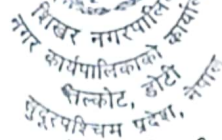 शिखर नगरपालि
नगर कार्यपालिकाको कार्या
सिल्कोट, डोटी
सुदूरपश्चिम प्रदेश, नेपाल